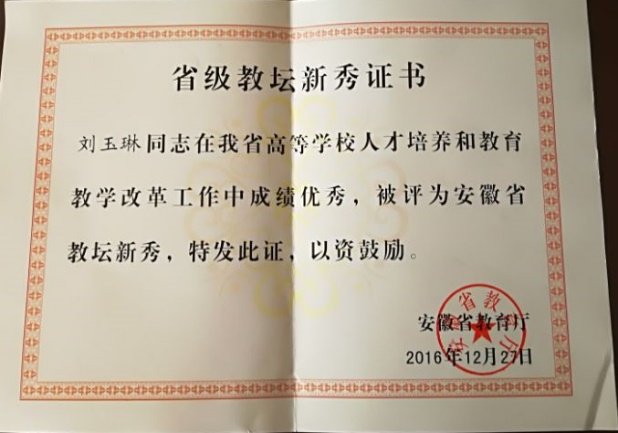 省级教坛新秀证书
刘玉琳同志在我省高等学校人才培养和教育
教学改革工作中成绩优秀，被评为安徽省
教坛新秀，特发此证，以资鼓励。
安徽省教育厅
2016年12月27日
安徽省教育厅